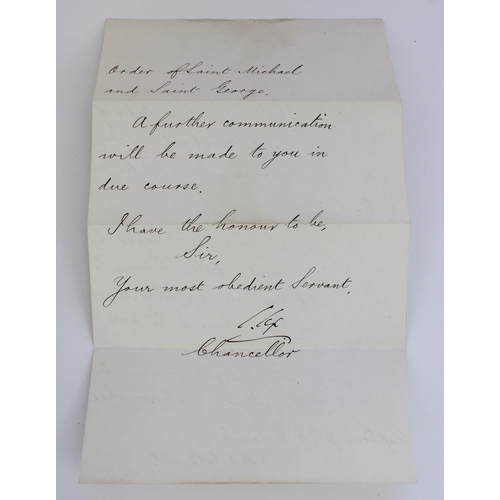 Order of Saint Michael
and Saint George.
A further communication
will be made to you in
due course.
I have the honour to be,
Sir,
Your most obedient Servant,
Chancellor